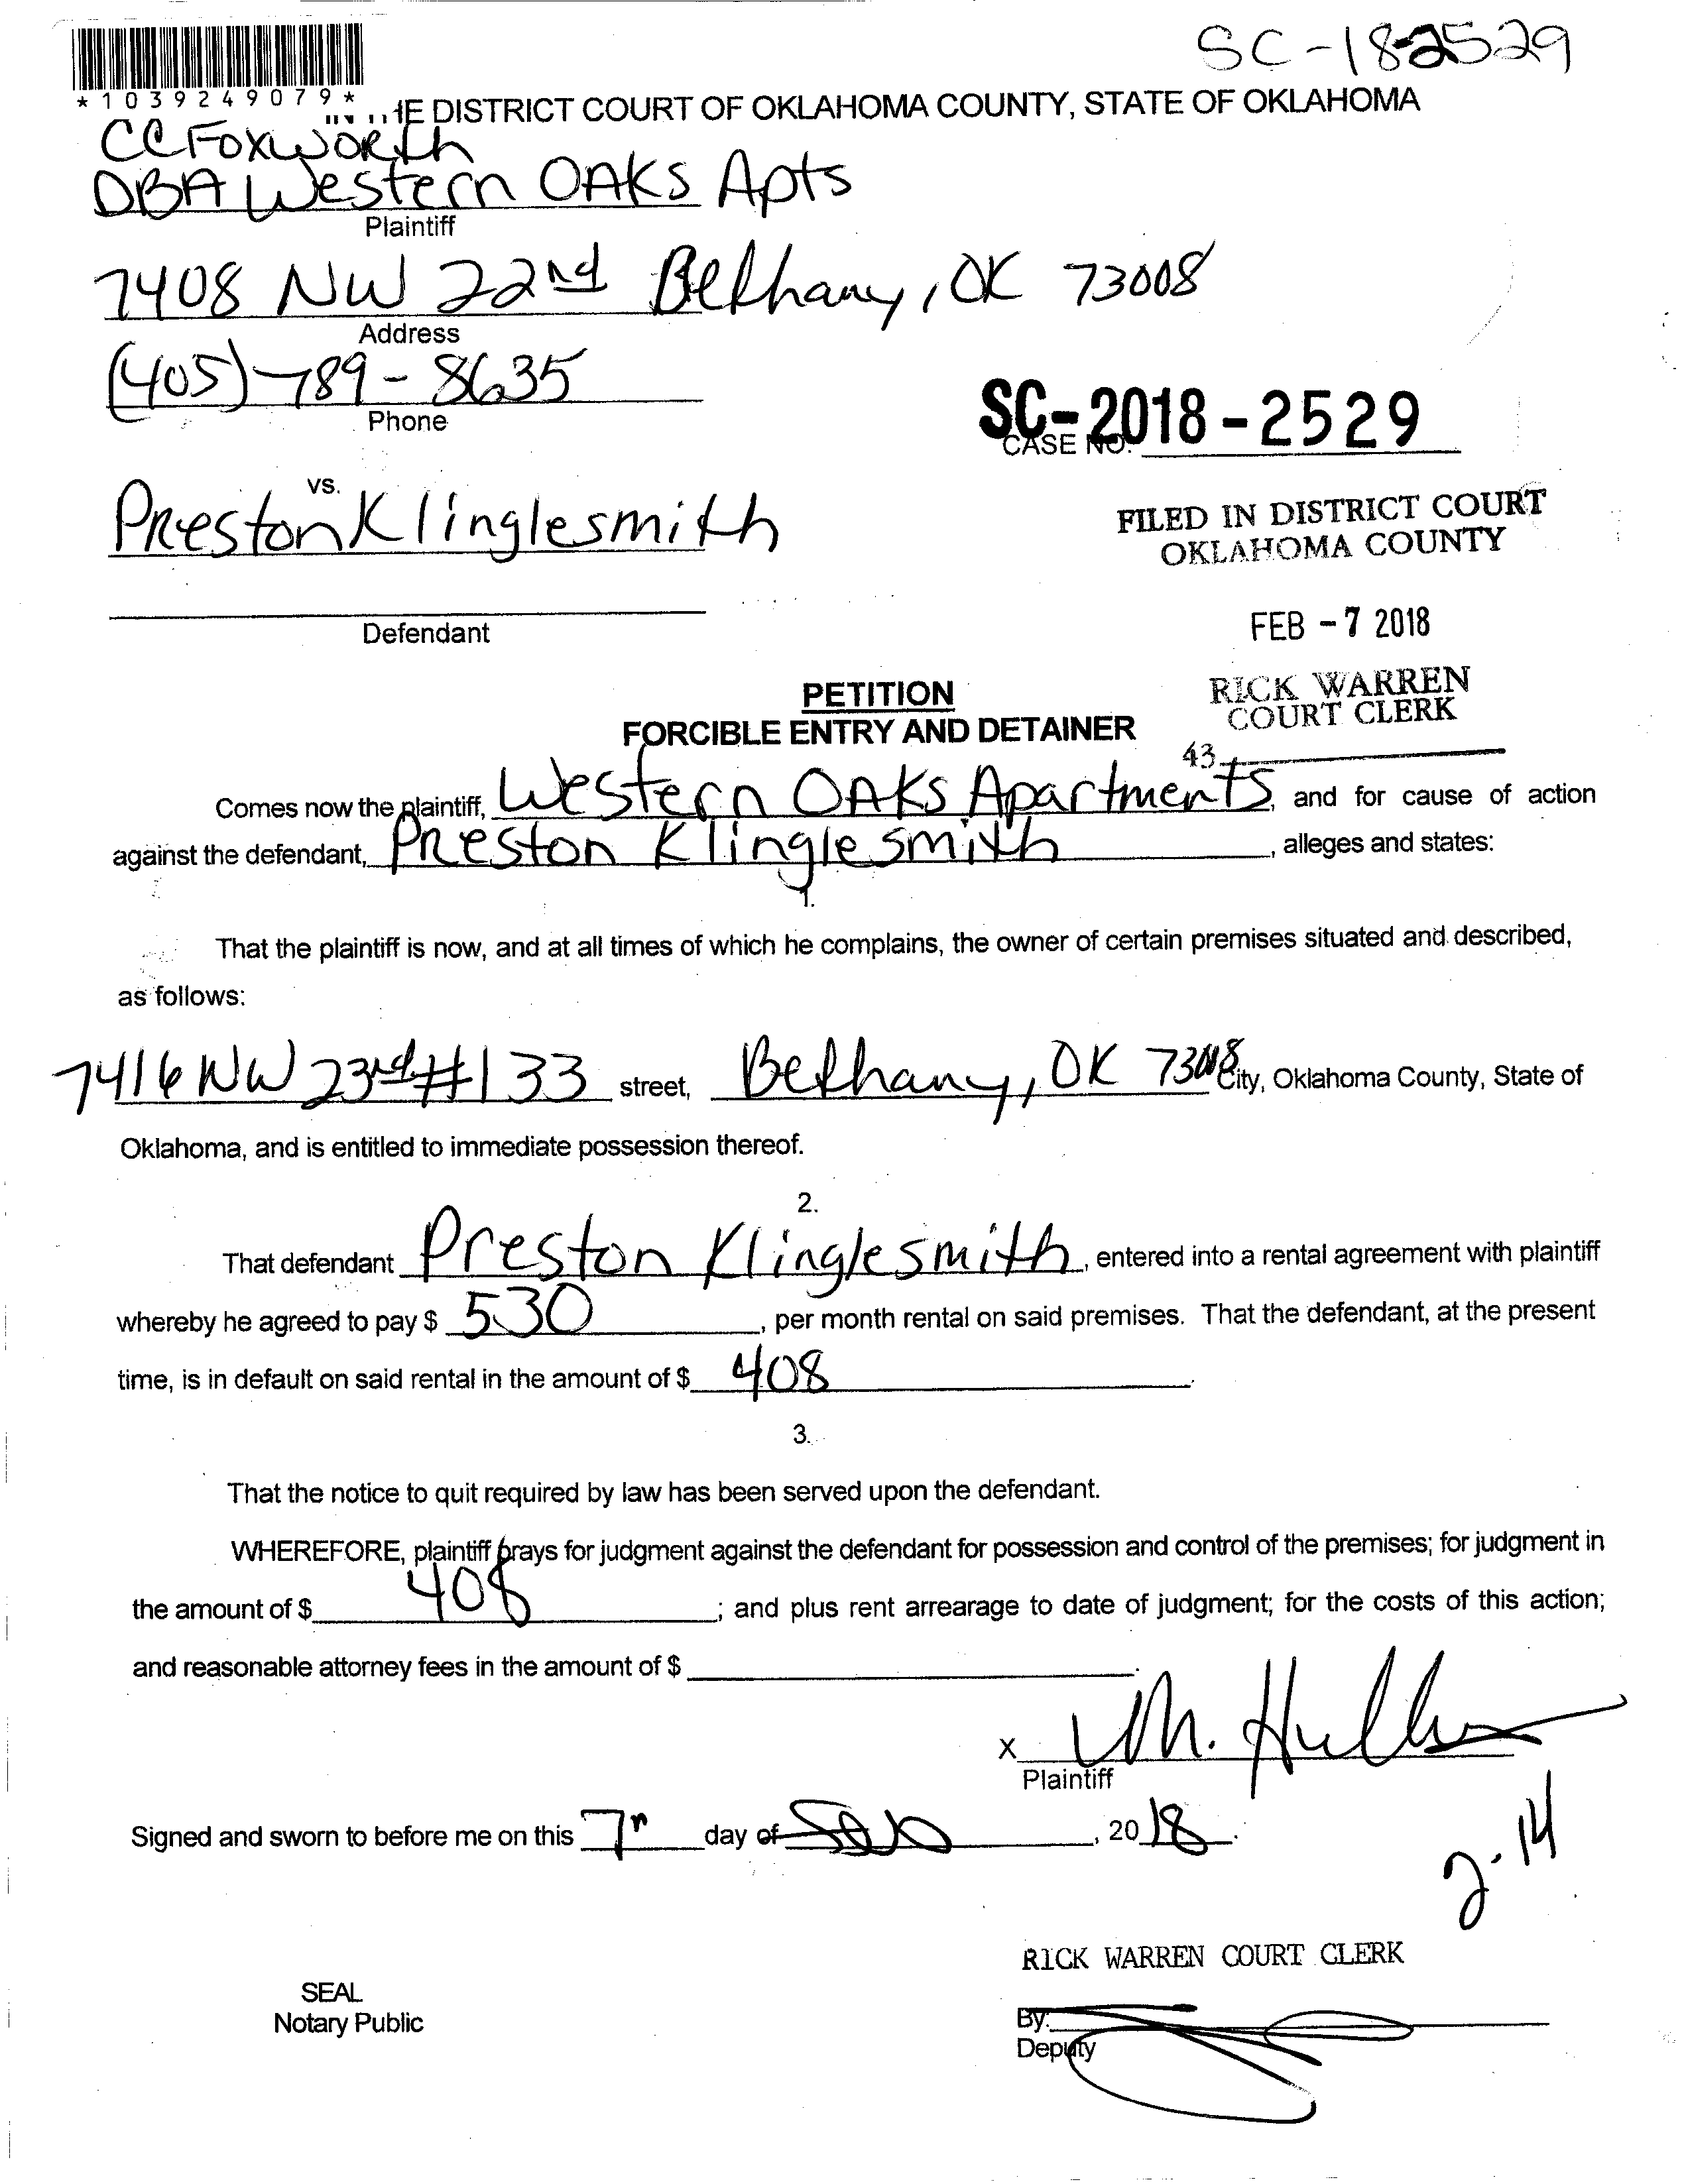 SC-18-2529
*1039249079*
HE DISTRICT COURT OF OKLAHOMA COUNTY, STATE OF OKLAHOMA
CC Foxworth
DBA Western OAKS Apts
Plaintiff
7408 NW 22nd Bethany, OK 73008
Address
(405)-789-8635
Phone
SC-2018-2529
CASE NO.
vs.
Preston Klinglesmith
FILED IN DISTRICT COURT
OKLAHOMA COUNTY
Defendant
FEB -7 2018
PETITION
RICK WARREN
COURT CLERK
FORCIBLE ENTRY AND DETAINER
43
Comes now the plaintiff, Western OAKS Apartments, and for cause of action
against the defendant, Preston Klinglesmith, alleges and states:
1.
That the plaintiff is now, and at all times of which he complains, the owner of certain premises situated and described,
as follows:
7416 NW 23rd #133 street, Bethany, OK 73008 City, Oklahoma County, State of
Oklahoma, and is entitled to immediate possession thereof.
2.
That defendant Preston Klinglesmith, entered into a rental agreement with plaintiff
whereby he agreed to pay $ 530, per month rental on said premises. That the defendant, at the present
time, is in default on said rental in the amount of $ 408.
3.
That the notice to quit required by law has been served upon the defendant.
WHEREFORE, plaintiff prays for judgment against the defendant for possession and control of the premises; for judgment in
the amount of $ 408; and plus rent arrearage to date of judgment; for the costs of this action;
and reasonable attorney fees in the amount of $
x M.
Plaintiff
Signed and sworn to before me on this 7 day of , 2018.
2-14
RICK WARREN COURT CLERK
SEAL
Notary Public
By:
Deputy